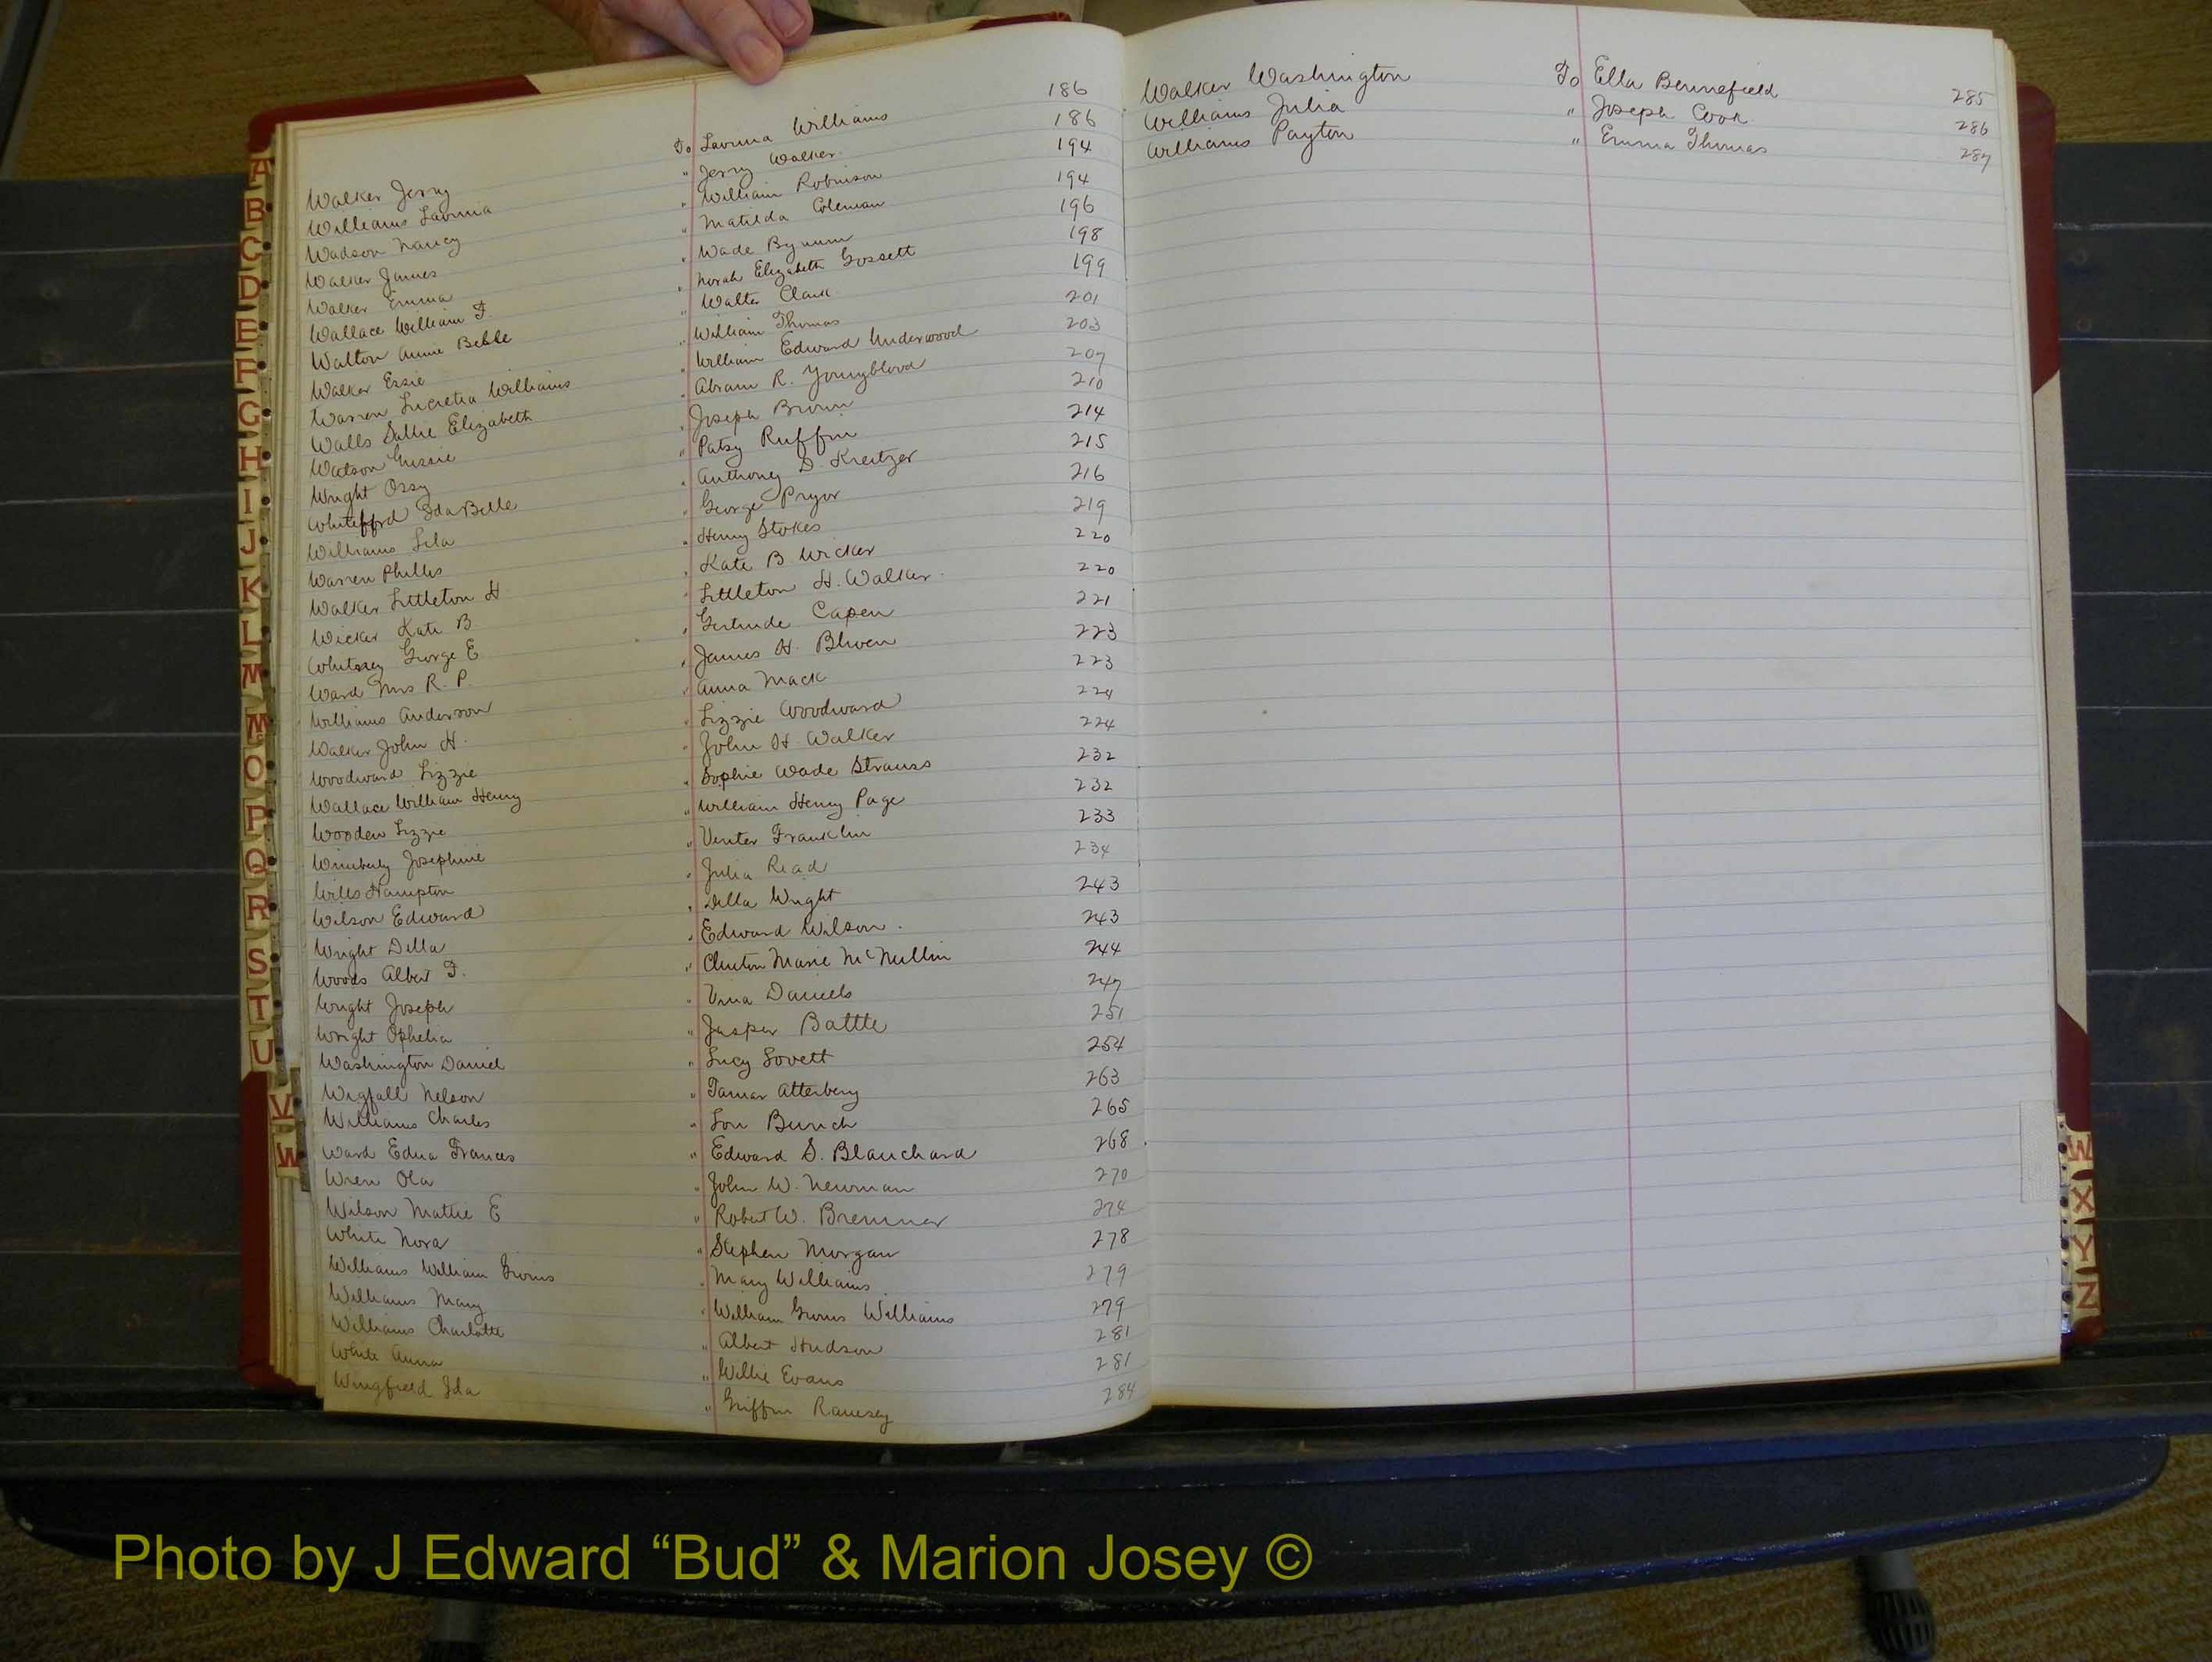 Walker Jerry To Lavinia Williams 186
Williams Lavinia " Jerry Walker 186
Wadson Nancy " William Robinson 194
Walker James " Matilda Coleman 194
Walker Emma " Wade Bynum 196
Wallace William F. " Norah Elizabeth Gossett 198
Walton Annie Belle " Walter Clark 199
Walker Essie " William Thomas 201
Warren Lucretia Williams " William Edward Underwood 203
Walls Sallie Elizabeth " Abram R. Youngblood 207
Watson Gussie " Joseph Brown 210
Wright Ozzy " Patsy Ruffin 214
Whitefford Ida Belle " Anthony D. Kreitzer 215
Williams Lila " George Pryor 216
Warren Phillis " Henry Stokes 219
Walker Littleton H " Kate B Wicker 220
Wicker Kate B. " Littleton H. Walker 220
Whitney George E " Gertrude Capen 221
Ward Mrs R. P. " James H. Bliven 223
Williams Anderson " Anna Mack 223
Walker John H. " Lizzie Woodward 224
Woodward Lizzie " John H. Walker 224
Wallace William Henry " Sophie Wade Strauss 232
Wooden Lizzie " William Henry Page 232
Wimberly Josephine " Venter Franklin 233
Wills Hampton " Julia Read 234
Wilson Edward " Della Wright 243
Wright Della " Edward Wilson. 243
Woods Albert F. " Clinton Marie McNullin 244
Wright Joseph " Vina Daniels 247
Wright Ophelia " Jasper Battle 251
Washington Daniel " Lucy Lovett 254
Wigfall Nelson " Tamar Atterbery 263
Williams Charles " Lou Bunch 265
Ward Edna Frances " Edward S. Blanchard 268
Wren Ola " John W. Newman 270
Wilson Mattie E " Robert W. Bremner 274
White Nora " Stephen Morgan 278
Williams William " Mary Williams 279
Williams Mary " William Williams 279
Williams Charlotte " Albert Hudson 281
White Anna " Willie Evans 281
Wingfield Ida " Griffin Ramsey 284
Walker Washington To Ella Bennefield 285
Williams Julia " Joseph Cook 286
Williams Payton " Emma Thomas 287
A
B
C
D
E
F
G
H
I
J
K
L
M
Mc
O
P
Q
R
S
T
U
V
W
W
X
Y
Z
Photo by J Edward “Bud” & Marion Josey ©